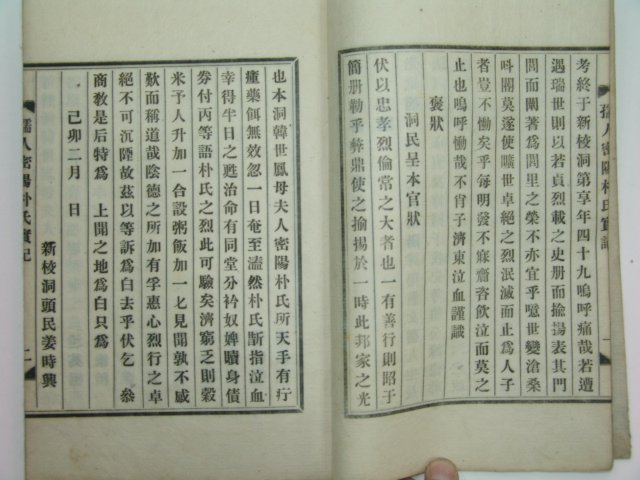 考終于新梭洞第享年四十九嗚呼痛哉若遭
遇瑞世則以若貞烈載之史册而揄揚表其門
閭而闡著爲閭里之榮不亦宜乎噫世變滄桑
呌閽莫遂使曠世卓絶之烈泯滅而止爲人子
者豈不慟矣乎每明發不寐齎咨飮泣而莫之
止也嗚呼慟哉不肖子濟東泣血謹識
褒狀
洞民呈本官狀
伏以忠孝烈倫常之大者也一有善行則昭于
簡册勒乎彜鼎使之揄揚於一時此邦家之光
孺人密陽朴氏實記
一
也本洞韓世鳳母夫人密陽朴氏所天手有疔
瘇藥餌無效忽一日奄至溘然朴氏斮指泣血
幸得半日之甦治命有同堂分衿奴婢贖身債
券付丙等語朴氏之烈此可驗矣濟窮乏則穀
米予人升加一合設粥飯加一匕見聞孰不感
歎而稱道哉陰德之所加有孚惠心烈行之卓
絶不可沉陻故玆以等訴爲白去乎伏乞 叅
商教是后特爲 上聞之地爲白只爲
己卯二月 日
新梭洞頭民姜時興
孺人密陽朴氏實記
二